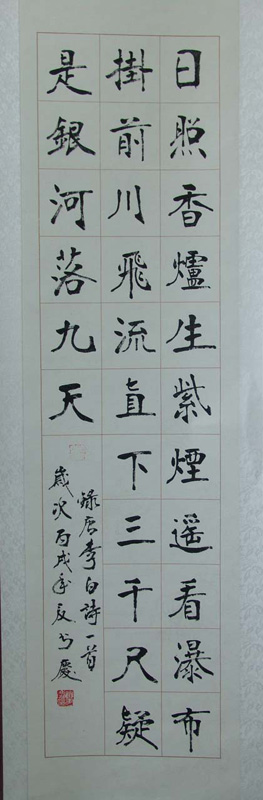 日照香爐生紫煙遥看瀑布
掛前川飛流直下三千尺疑
是銀河落九天
錄唐李白詩一首
歲次丙戌年夏書慶